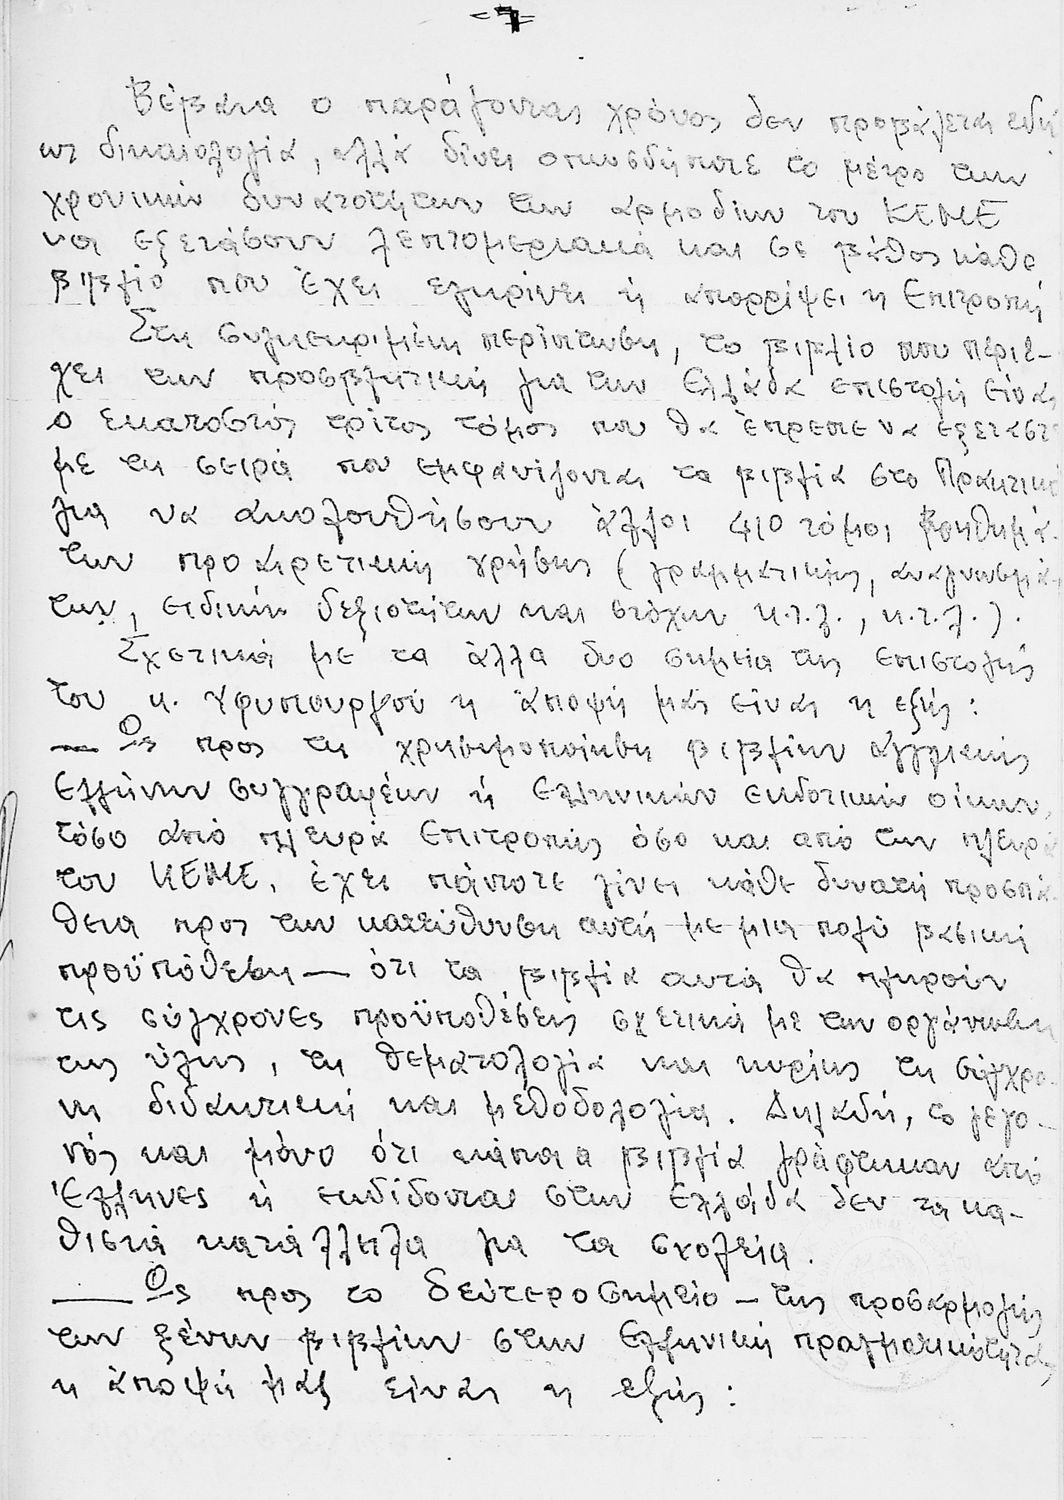 -7-
Βέβαια ο παράγοντας χρόνος δεν προβάλεται εδώ
ως δικαιολογία, αλλά δίνει οπωσδήποτε το μέτρο των
χρονικών δυνατοτήτων των αρμοδίων του ΚΕΜΕ
να εξετάσουν λεπτομεριακά και σε βάθος κάθε
βιβλίο που έχει εγκρίνει ή απορρίψει η Επιτροπή
Στη συγκεκριμένη περίπτωση, το βιβλίο που περιέ-
χει την προσβλητική για την Ελλάδα επιστολή είναι
ο εκατοστός τρίτος τόμος που θα έπρεπε να εξεταστ
με τη σειρά που εμφανίζονται τα βιβλία στο Πρακτικό
για να ακολουθήσουν άλλοι 410 τόμοι βοηθημά-
των προαιρετικής χρήσης (γραμματικής, αναγνωσμά-
των, ειδικών δεξιοτήτων και στόχων κ.τ.λ., κ.τ.λ.).
Σχετικά με τα άλλα δυο σημεία της επιστολής
του κ. Υφυπουργού η άποψή μας είναι η εξής:
— Ως προς τη χρησιμοποίηση βιβλίων αγγλικής
Ελλήνων συγγραφέων ή Ελληνικών εκδοτικών οίκων,
τόσο από πλευρά Επιτροπής όσο και από την πλευρά
του ΚΕΜΕ, έχει πάντοτε γίνει κάθε δυνατή προσπά-
θεια προς την κατεύθυνση αυτή με μια πολύ βασική
προϋπόθεση — ότι τα βιβλία αυτά θα πληρούν
τις σύγχρονες προϋποθέσεις σχετικά με την οργάνωση
της ύλης, τη θεματολογία και κυρίως τη σύγχρο-
νη διδακτική και μεθοδολογία. Δηλαδή, το γεγο-
νός και μόνο ότι κάποια βιβλία γράφτηκαν από
Έλληνες ή εκδίδονται στην Ελλάδα δεν τα κα-
θιστά κατάλληλα για τα σχολεία.
— Ως προς το δεύτερο σημείο – της προσαρμογής
των ξένων βιβλίων στην Ελληνική πραγματικότητα,
η άποψή μας είναι η εξής: